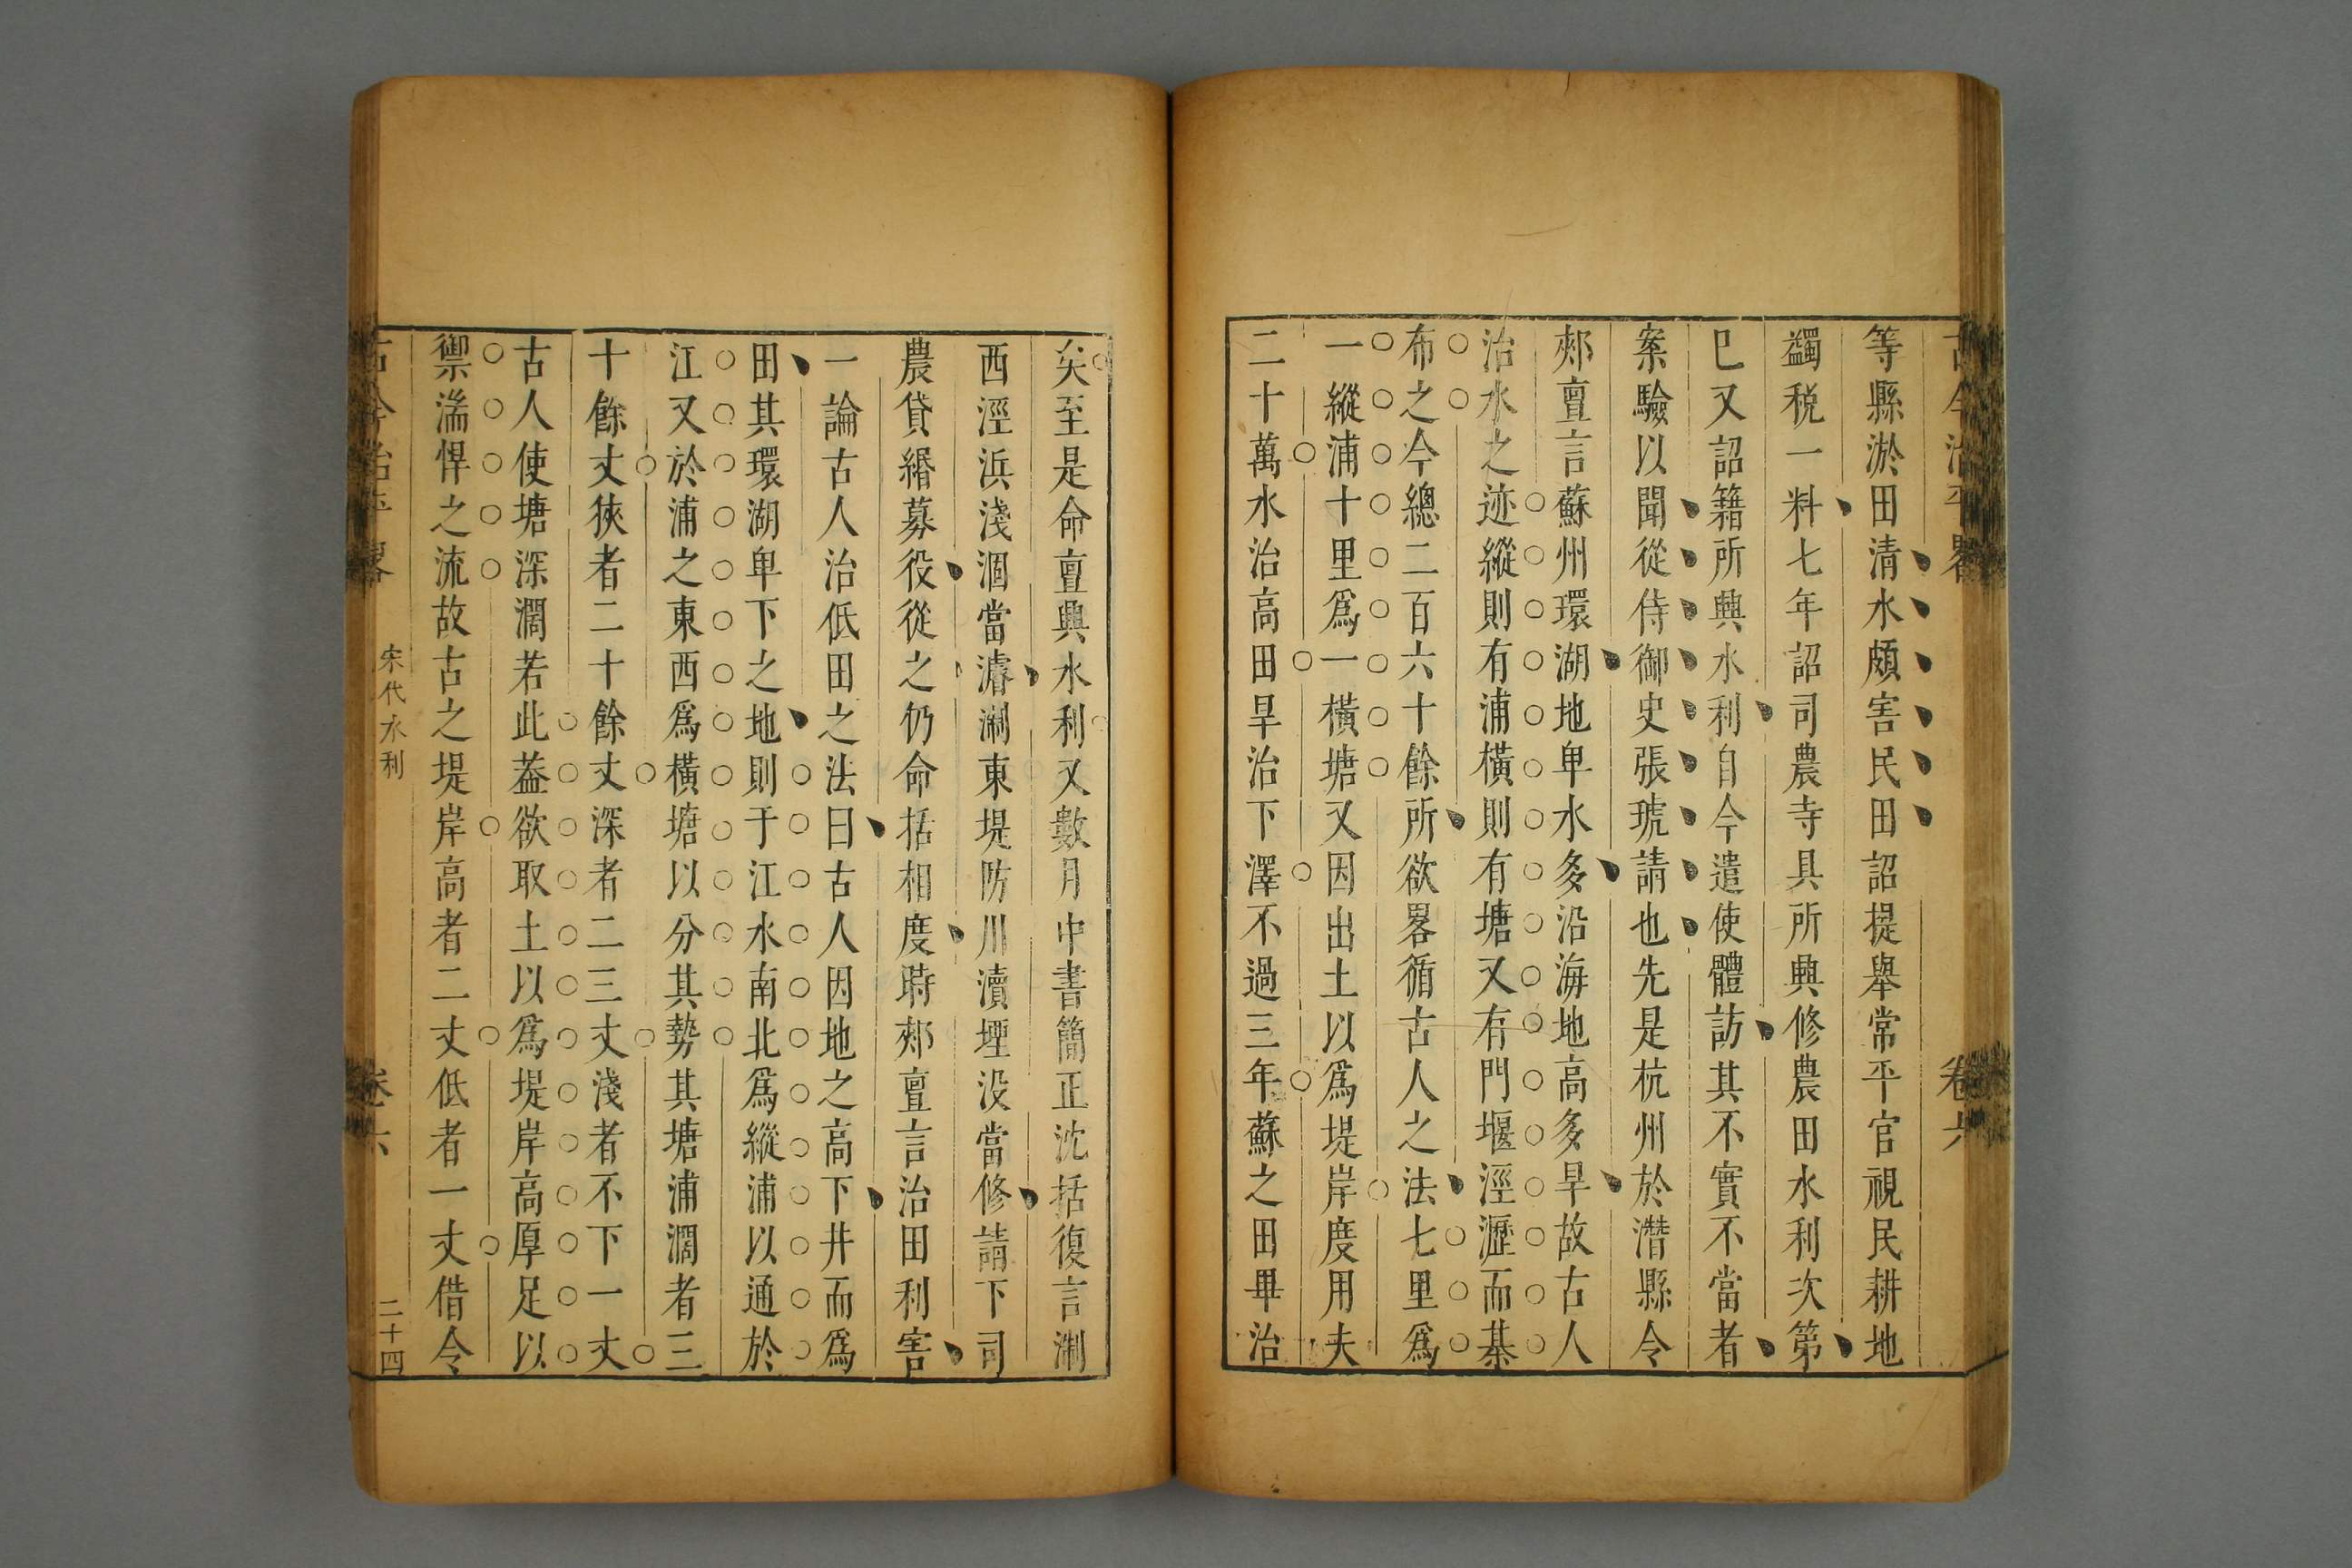 古今治平畧 卷六
等縣淤田清水頗害民田詔提舉常平官視民耕地
蠲税一料七年詔司農寺具所興修農田水利次第
巳又詔籍所興水利自今遣使體訪其不實不當者
案驗以聞從侍御史張琥請也先是杭州於潛縣令
郟亶言蘇州環湖地卑水多沿海地高多旱故古人
治水之迹縱則有浦橫則有塘又有門堰涇瀝而棊
布之今總二百六十餘所欲畧循古人之法七里爲
一縱浦十里爲一橫塘又因出土以爲堤岸度用夫
二十萬水治高田旱治下澤不過三年蘇之田畢治
矣至是命亶興水利又數月中書簡正沈括復言淛
西涇浜淺涸當濬淛東堤防川瀆堙没當修請下司
農貸緡募役從之仍命括相度時郟亶言治田利害
一論古人治低田之法曰古人因地之高下井而爲
田其環湖卑下之地則于江水南北爲縱浦以通於
江又於浦之東西爲橫塘以分其勢其塘浦濶者三
十餘丈狹者二十餘丈深者二三丈淺者不下一丈
古人使塘深濶若此葢欲取土以爲堤岸高厚足以
禦湍悍之流故古之堤岸高者二丈低者一丈借令
古今治平畧 宋代水利 卷六 二十四